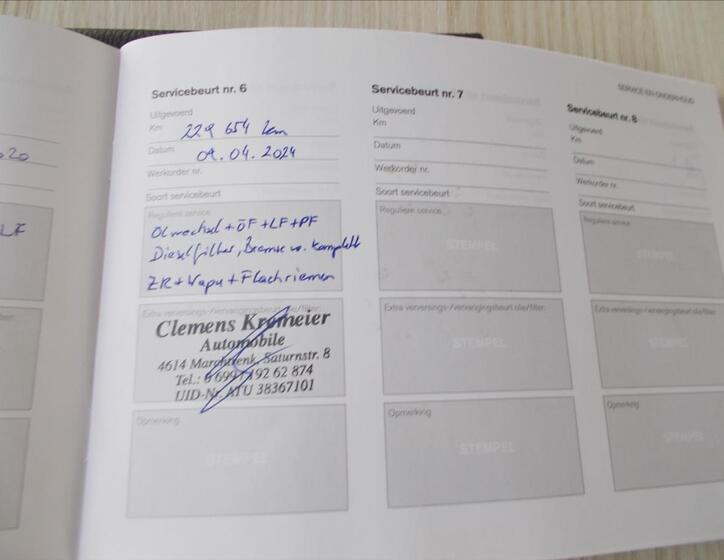 SERVICE EN ONDERHOUD
020
LF
Servicebeurt nr. 6
Uitgevoerd
Km 229 654 km
Datum 09.04.2024
Werkorder nr.
Soort servicebeurt
Reguliere service
Ölwechsel + ÖF + LF + PF
Dieselfilter, Bremse vo. komplett
ZR + Wapu + Flachriemen
Extra verversings-/vervangingsbeurt olie/filter
Clemens Kromeier
Automobile
4614 Marchtrenk, Saturnstr. 8
Tel.: 0 699 192 62 874
UID-Nr. ATU 38367101
Opmerking
STEMPEL
Servicebeurt nr. 7
Uitgevoerd
Km
Datum
Werkorder nr.
Soort servicebeurt
Reguliere service
STEMPEL
Extra verversings-/vervangingsbeurt olie/filter
STEMPEL
Opmerking
STEMPEL
Servicebeurt nr. 8
Uitgevoerd
Km
Datum
Werkorder nr.
Soort servicebeurt
Reguliere service
STEMPEL
Extra verversings-/vervangingsbeurt olie/filter
STEMPEL
Opmerking
STEMPEL